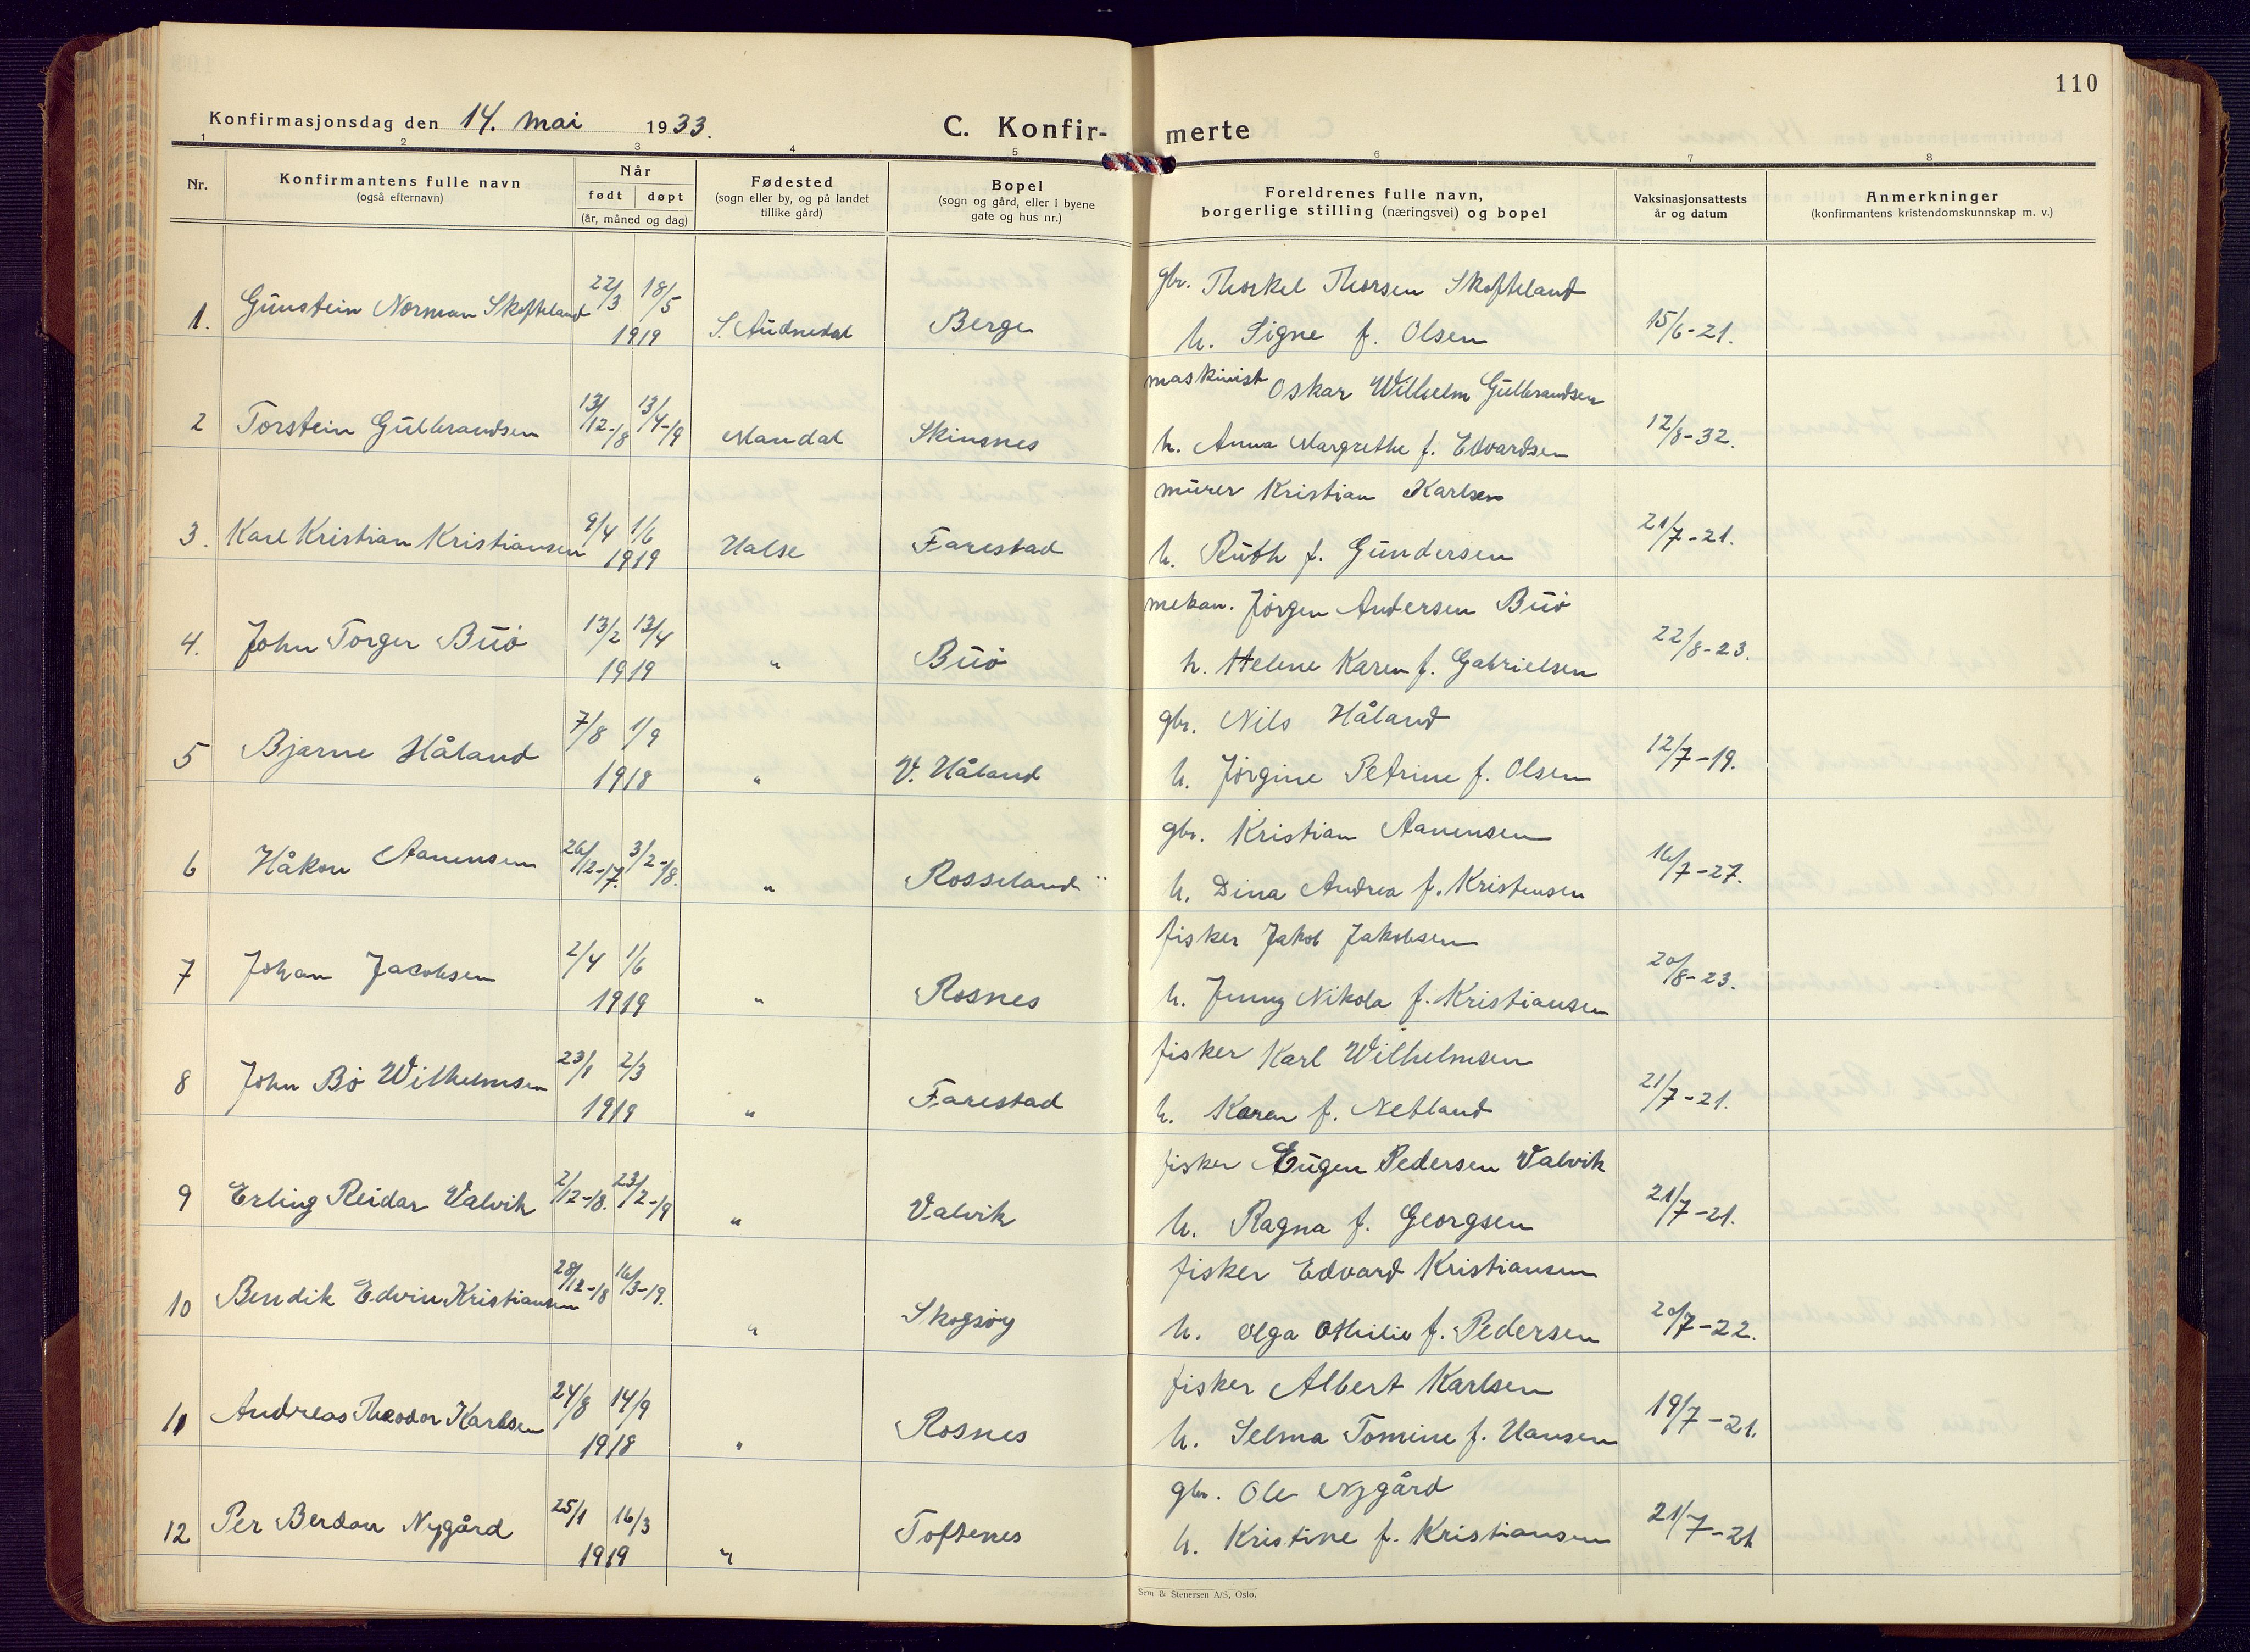 110
Konfirmasjonsdag den 14. mai 1933.
C. Konfir-
merte
1 2 3 4 5 6 7 8
Nr.
Konfirmantens fulle navn
(også efternavn)
Når
født døpt
(år, måned og dag)
Fødested
(sogn eller by, og på landet
tillike gård)
Bopel
(sogn og gård, eller i byene
gate og hus nr.)
Foreldrenes fulle navn,
borgerlige stilling (næringsvei) og bopel
Vaksinasjonsattests
år og datum
Anmerkninger
(konfirmantens kristendomskunnskap m. v.)
gbr. Thorkel Thorsen Skofteland
1. Gunstein Norman Skofteland 22/3 18/5 1919 S. Audnedal Berge h. Signe f. Olsen 15/6-21.
maskinist Oskar Wilhelm Gulbrandsen
2 Torstein Gulbrandsen 13/12-18 13/4-19 Mandal Skinsnes h. Anna Margrethe f. Edvardsen 12/8-32.
murer Kristian Karlsen
3. Karl Kristian Kristiansen 9/4 1/6 1919 Halse Farestad h. Ruth f. Gundersen 21/7-21.
mekan. Jørgen Andersen Buø
4. John Torger Buø 13/2 13/4 1919 " Buø h. Helene Karen f. Gabrielsen 22/8-23.
gbr. Nils Håland
5 Bjarne Håland 7/8 1/9 1918 " V. Håland h. Jørgine Petrine f. Olsen 12/7-19.
gbr. Kristian Aanensen
6 Håkon Aanensen 26/12-17. 3/2-18. " Rosseland h. Dina Andrea f. Kristensen 16/7-27.
fisker Jakob Jakobsen
7 Johan Jacobsen 2/4 1/6 1919 " Rosnes h. Jenny Nikola f. Kristiansen 20/8-23.
fisker Karl Wilhelmsen
8 John Bø Wilhelmsen 23/1 2/3 1919 " Farestad h. Karen f. Netland 21/7-21.
fisker Eugen Pedersen Valvik
9 Erling Reidar Valvik 2/12-18. 23/2-19 " Valvik h. Ragna f. Georgsen 21/7-21.
fisker Edvard Kristiansen
10 Bendik Edvin Kristiansen 28/12-18 16/3-19. " Skogsøy h. Olga Othilie f. Pedersen 20/7-22.
fisker Albert Karlsen
11 Andreas Theodor Karlsen 24/8 14/9 1918 " Rosnes h. Selma Tomine f. Hansen 19/7-21.
gbr. Ole Nygård
12 Per Berdon Nygård 25/1 16/3 1919 " Toftenes h. Kristine f. Kristiansen 21/7-21
Sem & Stenersen A/S, Oslo.